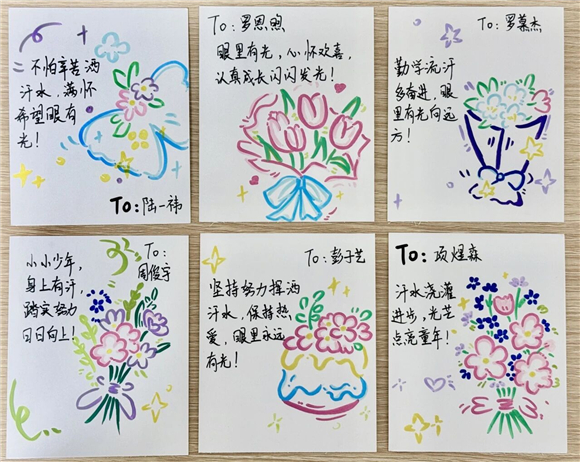 不怕辛苦洒
汗水，满怀
希望眼有
光！
To：陆一祎
To：罗恩煦
眼里有光，心怀欢喜，
认真成长闪闪发光！
To：罗慕杰
勤学流汗
多奋进，眼
里有光向远
方！
小小少年，
身上有汗，
踏实努力
日日向上！
To：
周俊宇
To：彭子艺
坚持努力挥洒
汗水，保持热
爱，眼里永远
有光！
To：项煜森
汗水浇灌
进步，光芒
点亮童年！